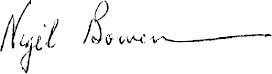 Nigel Bowen